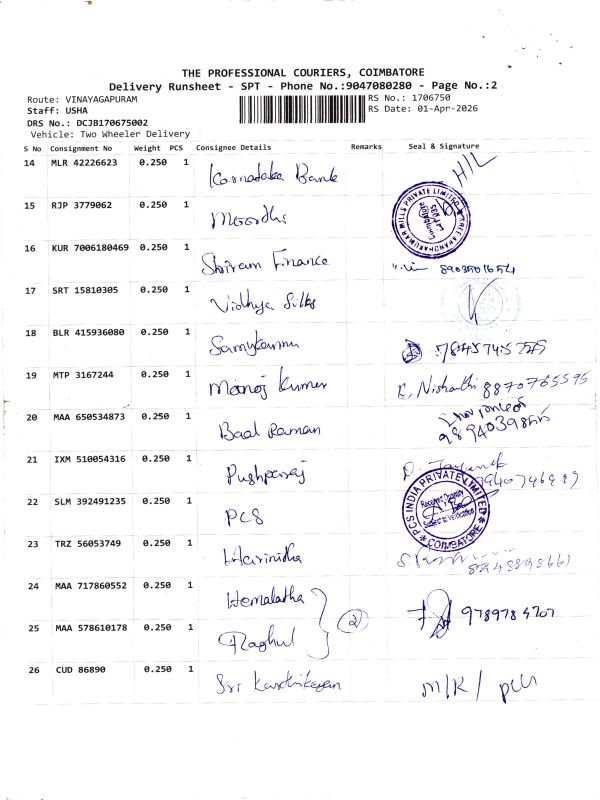 THE PROFESSIONAL COURIERS, COIMBATORE
Delivery Runsheet - SPT - Phone No.:9047080280 - Page No.:2
Route: VINAYAGAPURAM
RS No.: 1706750
Staff: USHA
RS Date: 01-Apr-2026
DRS No.: DCJB170675002
Vehicle: Two Wheeler Delivery
S No Consignment No Weight PCS Consignee Details Remarks Seal & Signature
14 MLR 42226623 0.250 1 Karnataka Bank H/L
15 RJP 3779062 0.250 1 Moorthi
16 KUR 7006180469 0.250 1 Shriram Finance
17 SRT 15810305 0.250 1 Vidhya Silks
18 BLR 415936080 0.250 1
19 MTP 3167244 0.250 1 Manoj Kumar K. Nishanthi 8870765595
20 MAA 650534873 0.250 1 Baal Raman
21 IXM 510054316 0.250 1 Pushparaj
22 SLM 392491235 0.250 1 PCS
PCS INDIA PRIVATE LIMITED
COIMBATORE
23 TRZ 56053749 0.250 1 Harinidha
24 MAA 717860552 0.250 1 Hemalatha
2
9789784707
25 MAA 578610178 0.250 1 Raghul
26 CUD 86890 0.250 1 Sri Karthikeyan M/R/